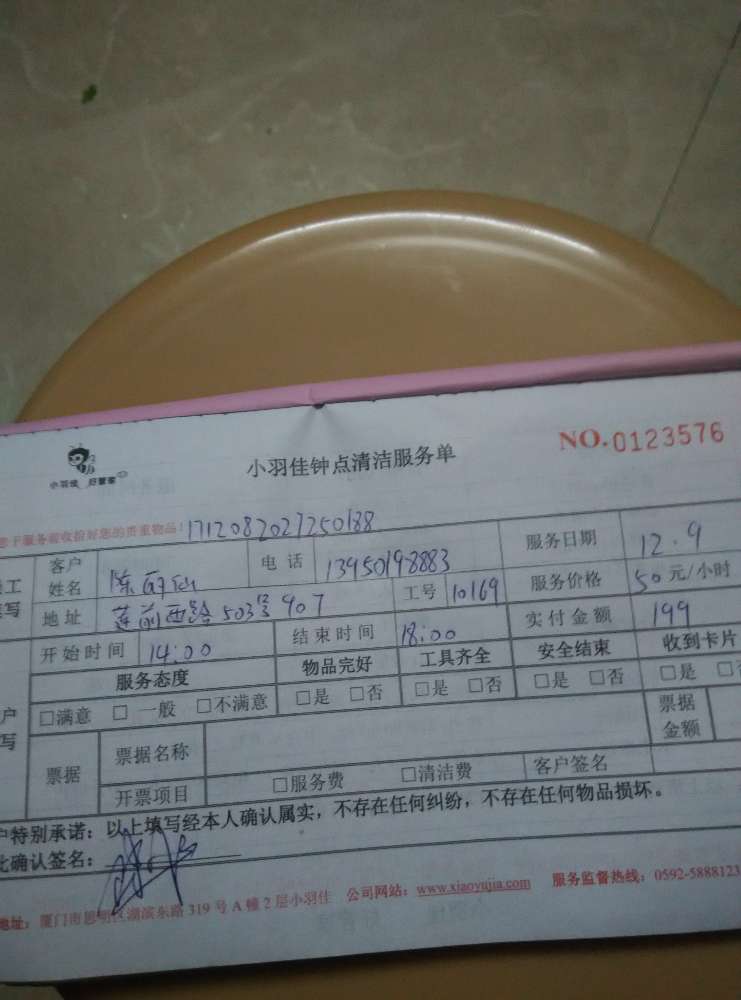 小羽佳 好管家
小羽佳钟点清洁服务单
NO.0123576
于服务前收拾好您的贵重物品! 1712082027250188
客户姓名 陈 电话 13950198883 服务日期 12.9
地址 莲前西路503号907 工号 10169 服务价格 50元/小时
开始时间 14:00 结束时间 18:00 实付金额 199
服务态度 物品完好 工具齐全 安全结束 收到卡片
□满意 □一般 □不满意 □是 □否 □是 □否 □是 □否 □是 □
票据 票据名称 票据金额
开票项目 □服务费 □清洁费 客户签名
户特别承诺：以上填写经本人确认属实，不存在任何纠纷，不存在任何物品损坏。
此确认签名：
地址：厦门市思明区湖滨东路319号A幢2层小羽佳 公司网站：www.xiaoyujia.com 服务监督热线：0592-5888123